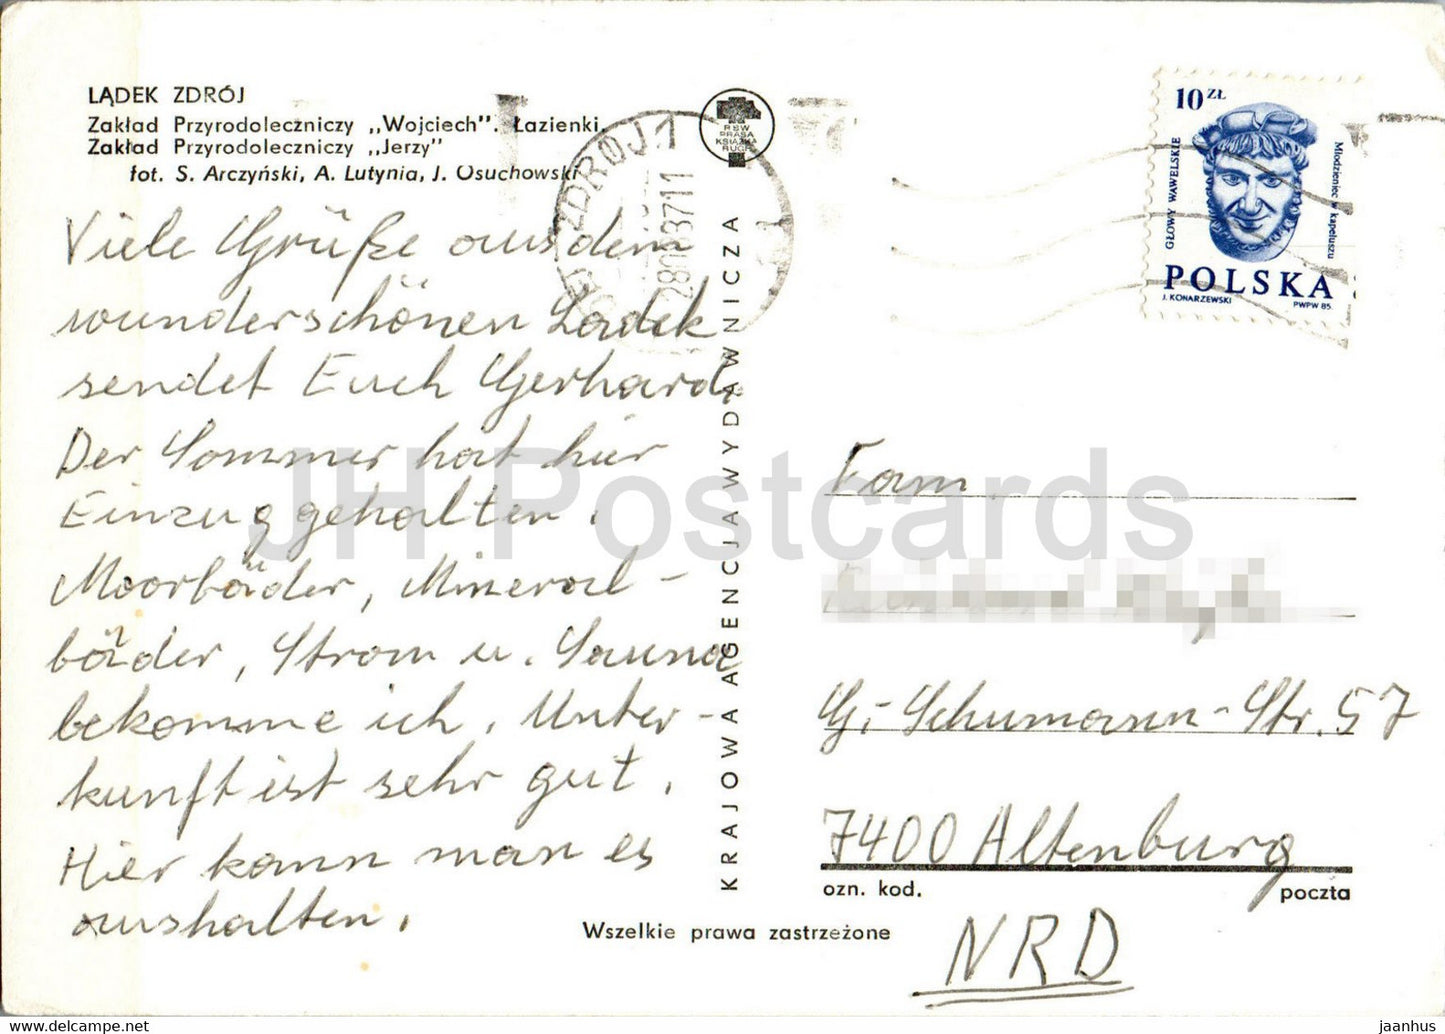 LĄDEK ZDRÓJ
Zakład Przyrodoleczniczy „Wojciech". Łazienki
Zakład Przyrodoleczniczy „Jerzy"
fot. S. Arczyński, A. Lutynia, J. Osuchowski
Viele Grüße aus dem
wunderschönen Ladek
sendet Euch Gerhard.
Der Sommer hat hier
Einzug gehalten.
Moorbäder, Mineral-
bäder, Strom u. Sauna
bekomme ich. Unter-
kunft ist sehr gut.
Hier kann man es
aushalten.
KRAJOWA AGENCJA WYDAWNICZA
RSW
PRASA
KSIĄŻKA
RUCH
ZDRÓJ 1
10 ZŁ
GŁOWY WAWELSKIE
Młodzieniec w kapeluszu
POLSKA
J. KONARZEWSKI PWPW 85.
Fam.
G.-Schumann-Str. 57
7400 Altenburg
ozn. kod. poczta
NRD
Wszelkie prawa zastrzeżone
JH Postcards
https://www.delcampe.net jaanhus